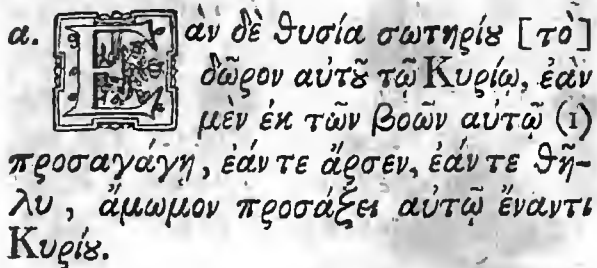 α. Εὰν δὲ ϑυσία σωτηρίȣ [τὸ]
δῶρον αὐτȣ͂ τῷ Κυρίῳ, ἐὰν
μὲν ἐκ τῶν βοῶν αὐτῷ (1)
προσαγάγῃ, ἐάν τε ἄρσεν, ἐάν τε ϑῆ-
λυ, ἄμωμον προσάξει αὐτῷ ἔναντι
Κυρίȣ.